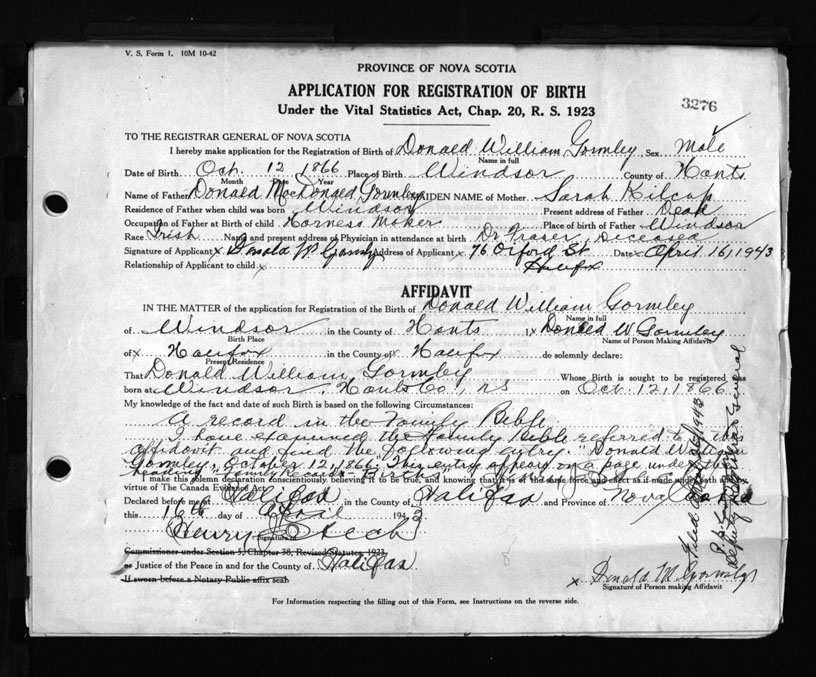 V. S. Form 1. 10M 10-42
PROVINCE OF NOVA SCOTIA
APPLICATION FOR REGISTRATION OF BIRTH
3276
Under the Vital Statistics Act, Chap. 20, R. S. 1923
TO THE REGISTRAR GENERAL OF NOVA SCOTIA
I hereby make application for the Registration of Birth of Donald William Gormley, Sex Male
Name in full
Date of Birth Oct. 12 1866 Place of Birth Windsor County of Hants
Month Date Year
Name of Father Donald MacDonald Gormley MAIDEN NAME of Mother Sarah Kilcup
Residence of Father when child was born Windsor Present address of Father Dead
Occupation of Father at Birth of child Harness Maker Place of birth of Father Windsor
Race Irish Name and present address of Physician in attendance at birth Dr Fraser, Deceased
Signature of Applicant x Donald W Gormley Address of Applicant x 76 Oxford St Date x April 16, 1943
Halifax
Relationship of Applicant to child x
AFFIDAVIT
IN THE MATTER of the application for Registration of the Birth of Donald William Gormley
Name in full
of Windsor in the County of Hants I x Donald W Gormley
Birth Place Name of Person Making Affidavit
of x Halifax in the County of x Halifax do solemnly declare:
Present Residence
That Donald William Gormley Whose Birth is sought to be registered was
born at Windsor, Hants Co., NS on Oct. 12, 1866
My knowledge of the fact and date of such Birth is based on the following Circumstances:
A record in the Family Bible
I have examined the Family Bible referred to in this
affidavit and find the following entry. "Donald William
Gormley, October 12, 1866". This entry appears on a page under the
heading "Family Records - Births"
I make this solemn declaration conscientiously believing it to be true, and knowing that it is of the same force and effect as if made under oath and by
virtue of The Canada Evidence Act.
Declared before me at Halifax in the County of Halifax and Province of Nova Scotia
this 16th day of April 1943
Henry
Signature of
Commissioner under Section 5, Chapter 38, Revised Statutes, 1923
or Justice of the Peace in and for the County of Halifax
If sworn before a Notary Public affix seal
x Donald W Gormley
Signature of Person making Affidavit
For Information respecting the filling out of this Form, see Instructions on the reverse side.
Filed 1943
Deputy Registrar General